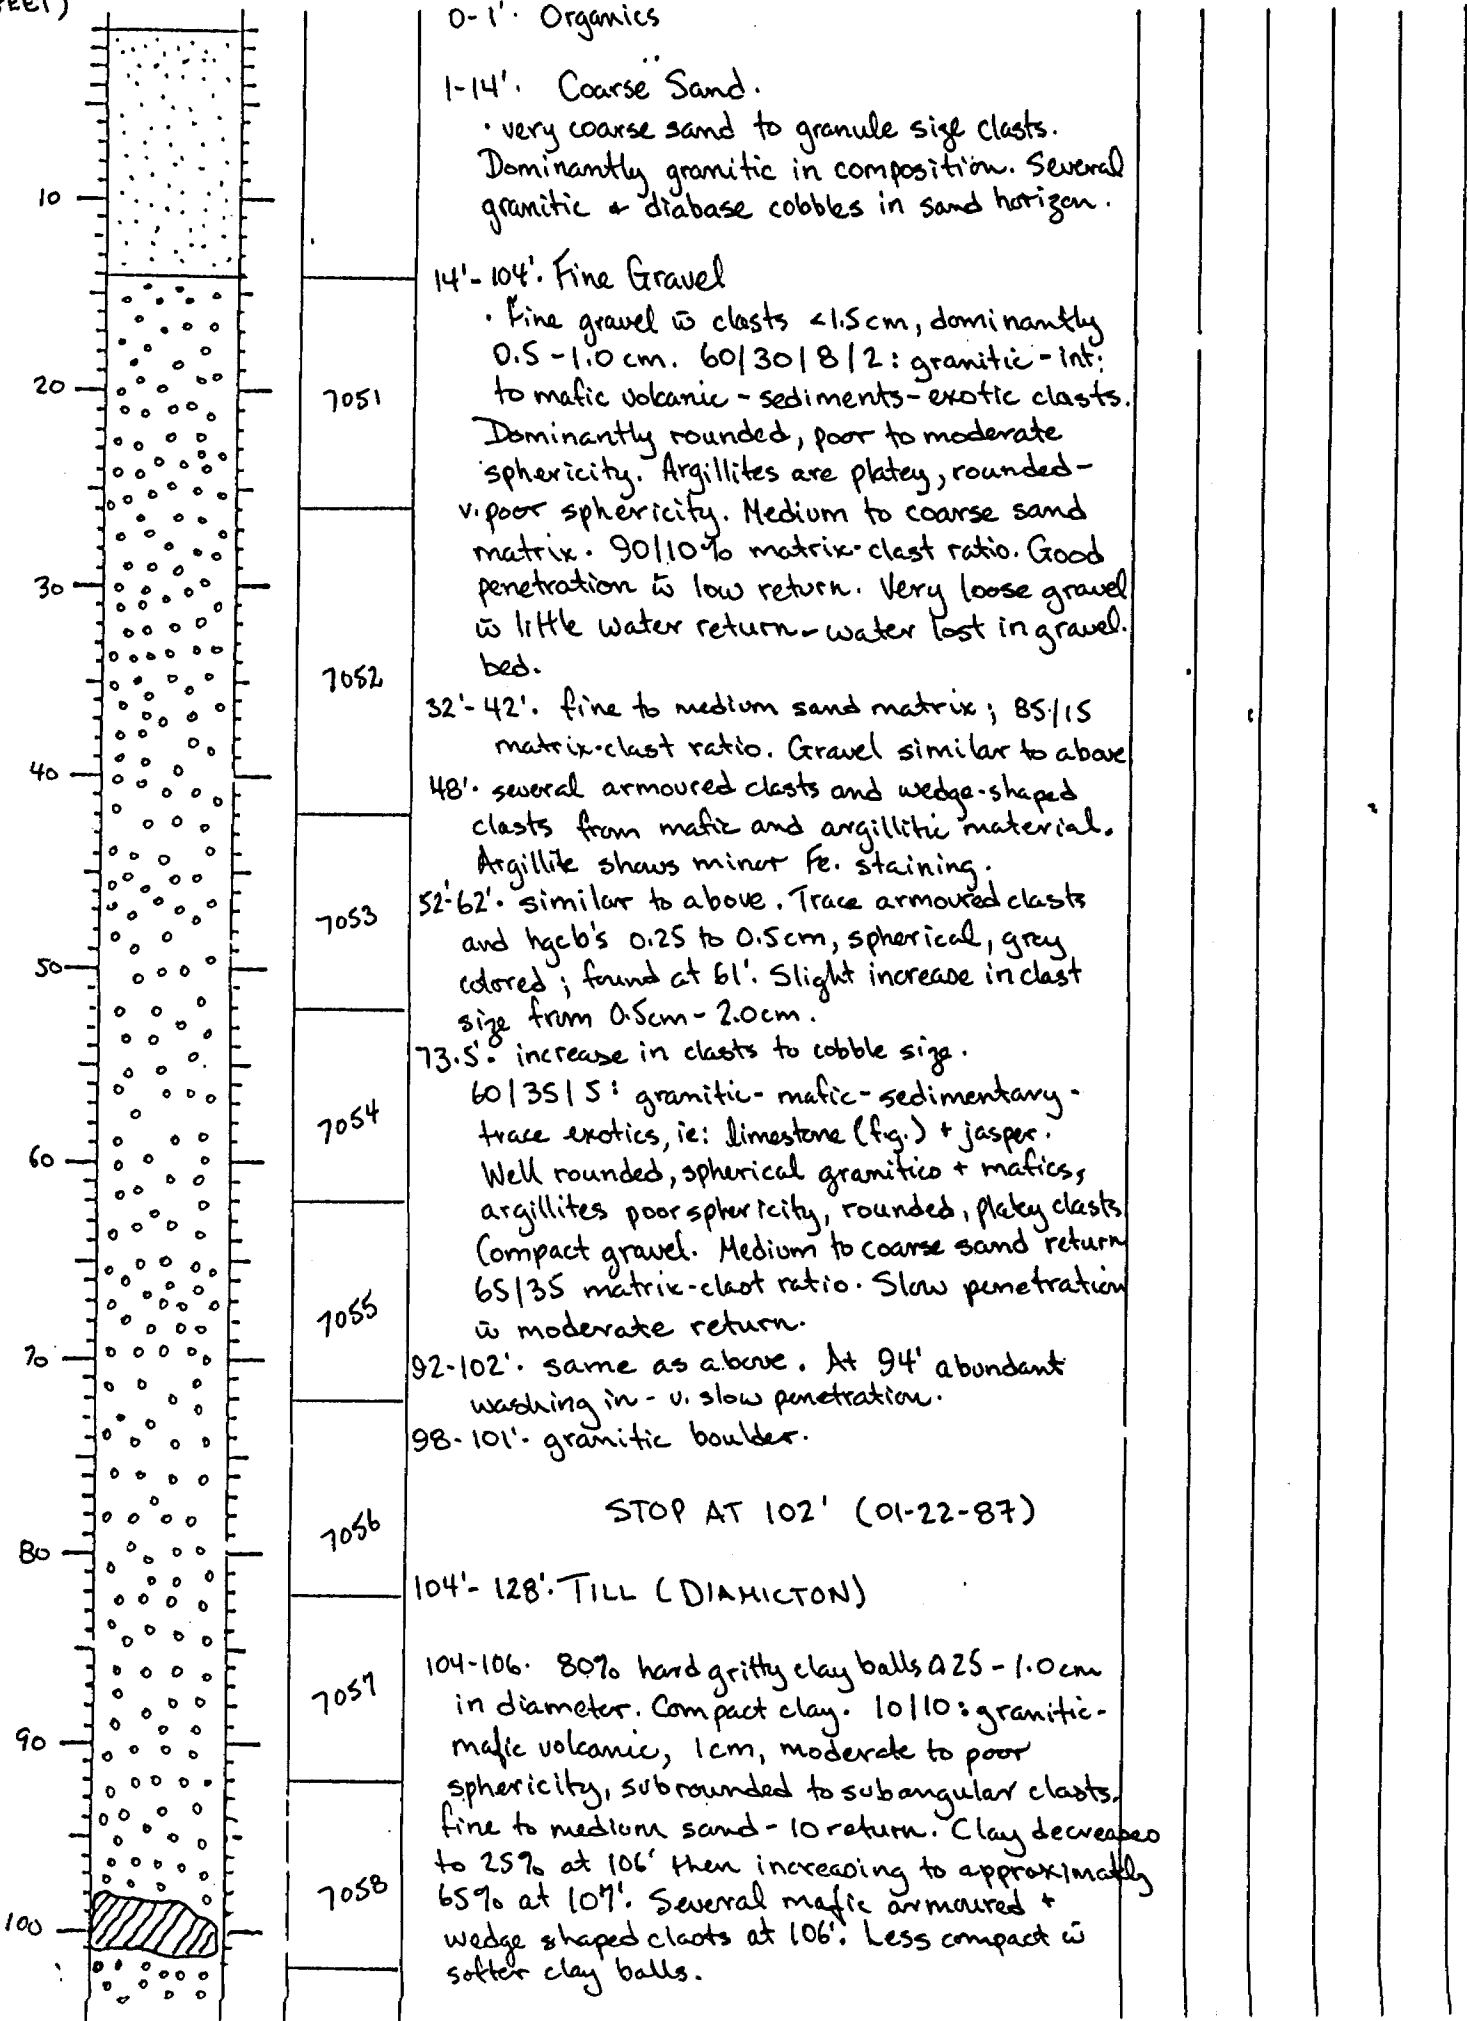 FEET)
0-1'. Organics
1-14'. Coarse Sand.
· very coarse sand to granule size clasts.
Dominantly granitic in composition. Several
granitic + diabase cobbles in sand horizon.
14'-104'. Fine Gravel
· Fine gravel w̄ clasts <1.5cm, dominantly
0.5-1.0 cm. 60/30/8/2: granitic-int.
to mafic volcanic-sediments-exotic clasts.
Dominantly rounded, poor to moderate
sphericity. Argillites are platey, rounded-
v. poor sphericity. Medium to coarse sand
matrix. 90/10% matrix-clast ratio. Good
penetration w̄ low return. Very loose gravel
w̄ little water return-water lost in gravel.
bed.
32'-42'. fine to medium sand matrix; 85/15
matrix-clast ratio. Gravel similar to above
48'. several armoured clasts and wedge-shaped
clasts from mafic and argillitic material.
Argillite shows minor Fe. staining.
52'-62'. similar to above. Trace armoured clasts
and hgcb's 0.25 to 0.5cm, spherical, grey
colored; found at 61'. Slight increase in clast
size from 0.5cm-2.0cm.
73.5'. increase in clasts to cobble size.
60/35/5: granitic-mafic-sedimentary-
trace exotics, ie: limestone (f.g.) + jasper.
Well rounded, spherical granitics + mafics,
argillites poor sphericity, rounded, platey clasts
Compact gravel. Medium to coarse sand return
65/35 matrix-clast ratio. Slow penetration
w̄ moderate return.
92-102'. same as above. At 94' abundant
washing in - v. slow penetration.
98-101'. granitic boulder.
STOP AT 102' (01-22-87)
104'-128'. TILL (DIAMICTON)
104-106. 80% hard gritty clay balls 0.25-1.0cm
in diameter. Compact clay. 10/10: granitic-
mafic volcanic, 1cm, moderate to poor
sphericity, subrounded to subangular clasts.
fine to medium sand-10 return. Clay decreases
to 25% at 106' then increasing to approximatly
65% at 107'. Several mafic armoured +
wedge shaped clasts at 106'. Less compact w̄
softer clay balls.
10
20
30
40
50
60
70
80
90
100
7051
7052
7053
7054
7055
7056
7057
7058